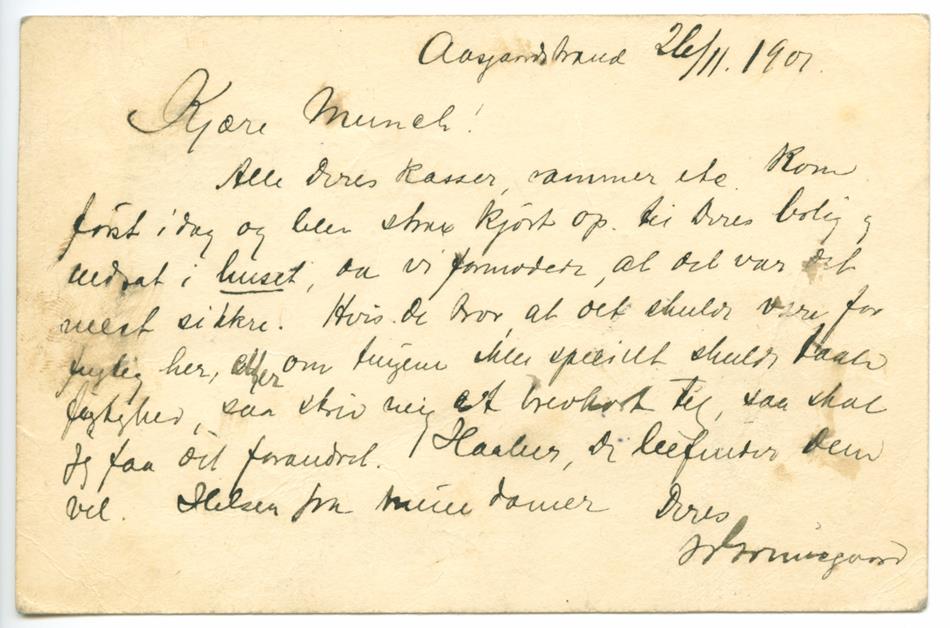 Aasgaardstrand 26/11. 1901.
Kjære Munch!
Alle Deres kasser, rammer etc. kom
først idag og blev strax kjørt op til Deres bolig og
nedsat i huset, da vi formodede, at det var det
mest sikkre. Hvis De tror, at det skulde være for
fugtig her, eller om tingene ikke specielt skulde taale
fugtighed, saa skriv mig et brevkort til, saa skal
jeg faa det forandret. Haaber, De befinder Dem
vel. Hilsen fra mine damer Deres